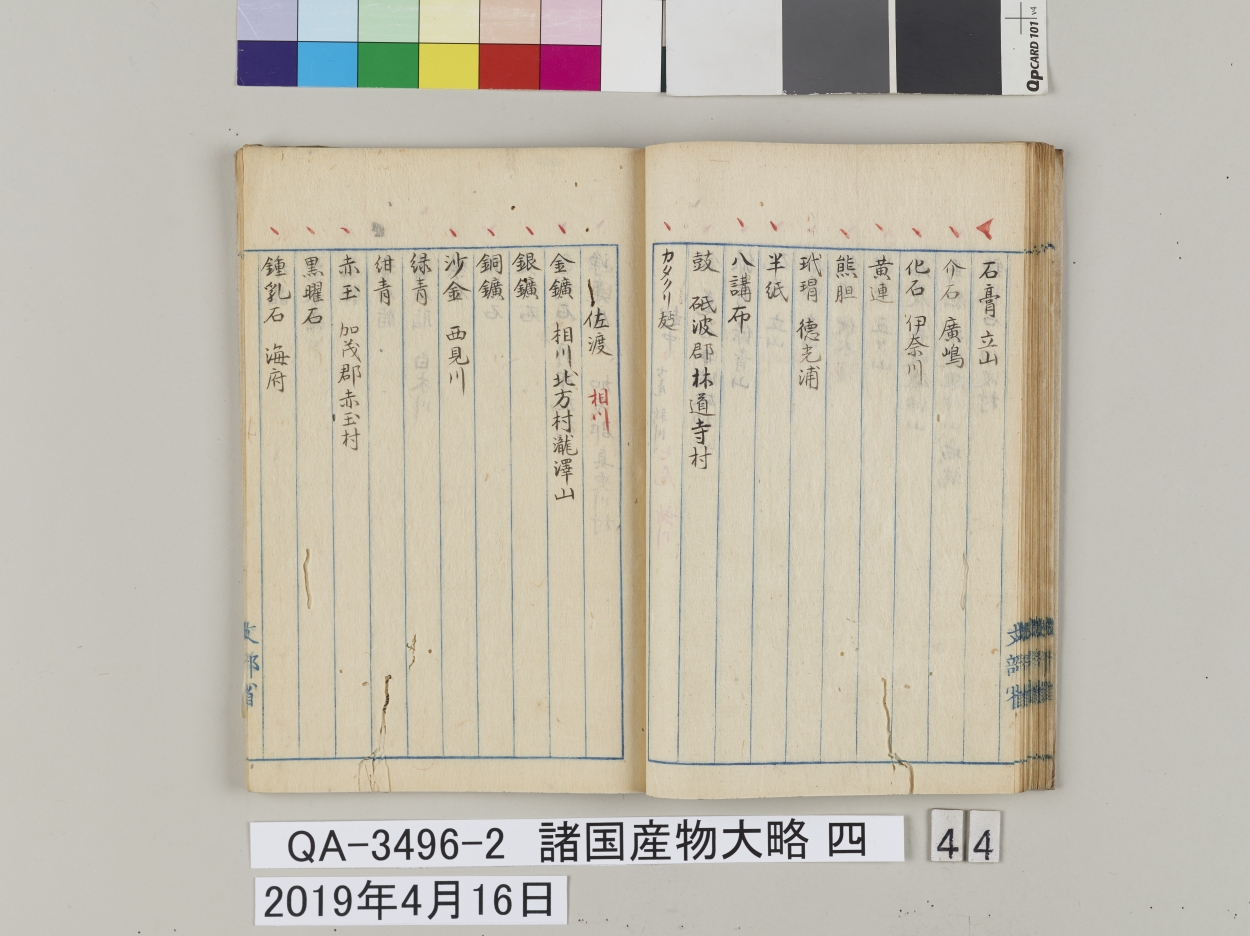 QPCARD 101 v4
石膏 立山
介石 廣嶋
化石 伊奈川
黄連
熊胆
玳瑁 徳光浦
半紙
八講布
鼓 砥波郡林道寺村
カタクリ
佐渡 相川
金鑛 相川北方村瀧澤山
銀鑛
銅鑛
沙金 西見川
緑青
紺青
赤玉 加茂郡赤玉村
黒曜石
鍾乳石 海府
文部省
文部省
QA-3496-2 諸国産物大略 四
44
2019年4月16日